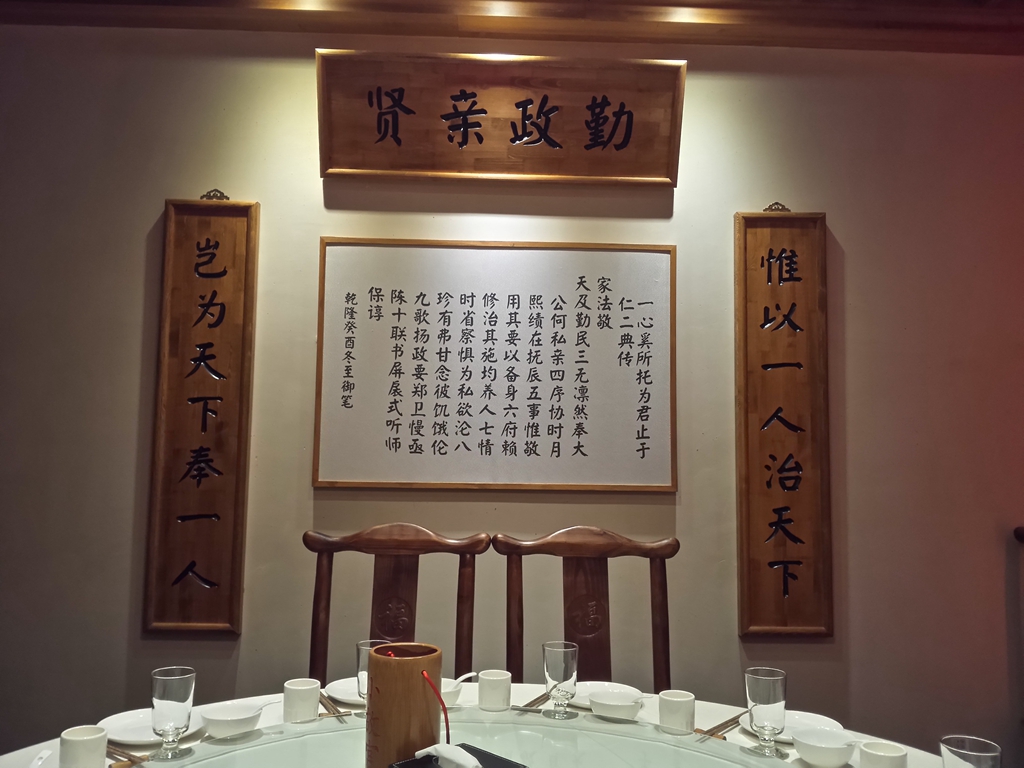 勤政亲贤
惟以一人治天下
岂为天下奉一人
一心奚所托为君止于
仁二典传
家法敬
天及勤民三无凛然奉大
公何私亲四序协时月
熙绩在抚辰五事惟敬
用其要以备身六府赖
修治其施圴养人七情
时省察惧为私欲沦八
珍有弗甘念彼饥饿伦
九歌扬政要郑卫慢亟
陈十联书屏扆式听师
保谆
乾隆癸酉冬至御笔
福
福